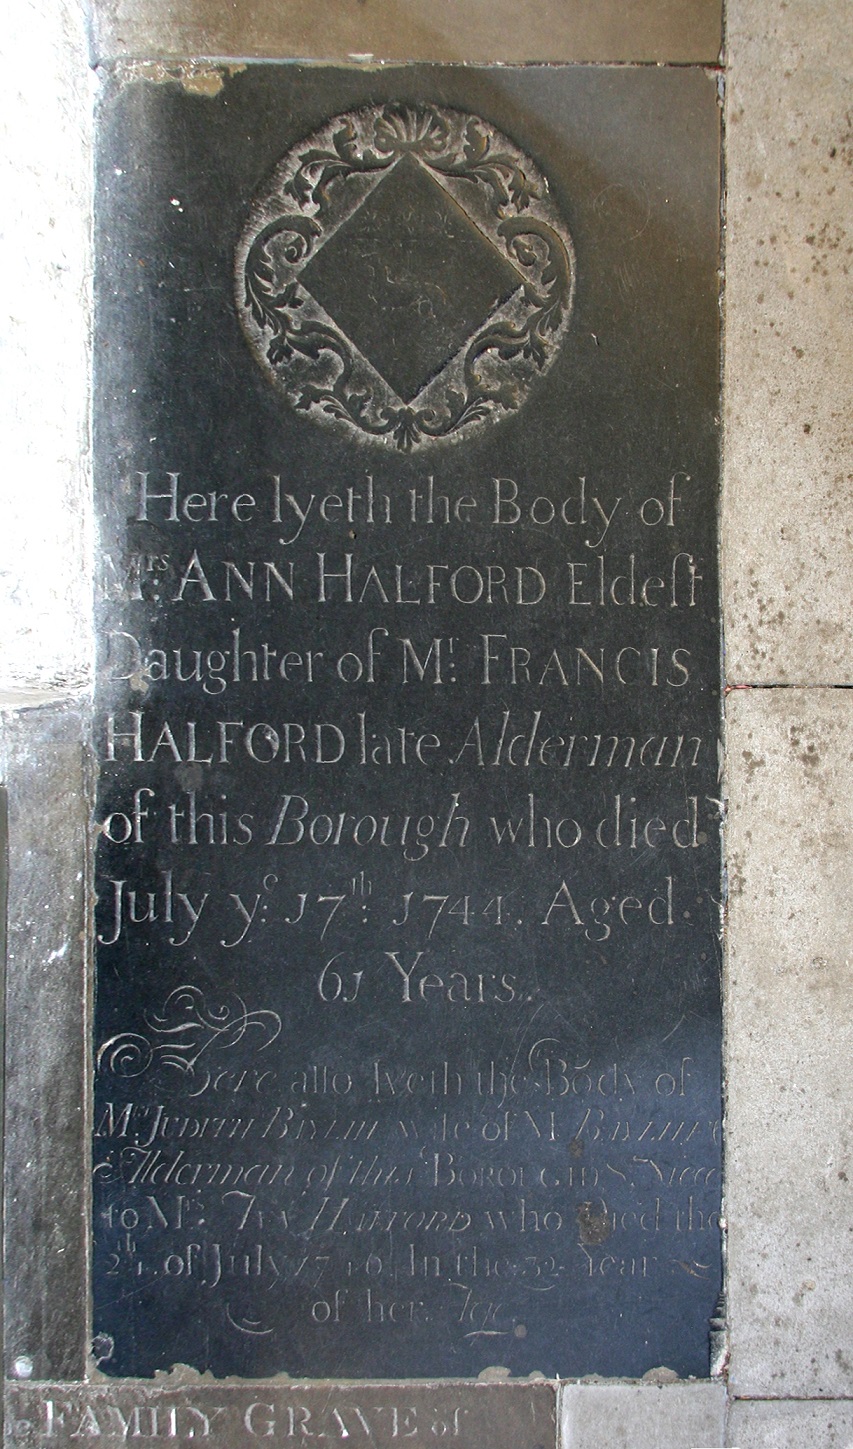 Here lyeth the Body of
Mrs. ANN HALFORD Eldeſt
Daughter of Mr. FRANCIS
HALFORD late Alderman
of this Borough who died
July ye. 17th. 1744. Aged.
61 Years.
Here alſo lyeth the Body of
Mrs. JUDITH wife of Mr.
Alderman of this BOROUGH
to Mrs. HALFORD who Died the
of July In the 32 Year
of her Age
FAMILY GRAVE of